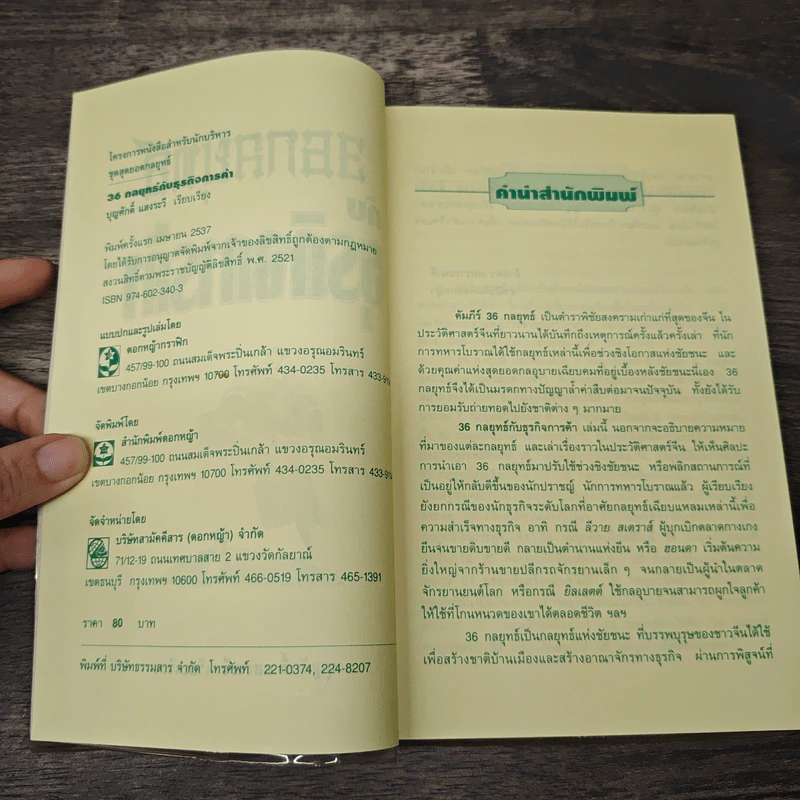 โครงการหนังสือสำหรับนักบริหาร
ชุดสุดยอดกลยุทธ์
36 กลยุทธ์กับธุรกิจการค้า
บุญศักดิ์ แสงระวี เรียบเรียง
พิมพ์ครั้งแรก เมษายน 2537
โดยได้รับการอนุญาตจัดพิมพ์จากเจ้าของลิขสิทธิ์ถูกต้องตามกฎหมาย
สงวนสิทธิ์ตามพระราชบัญญัติลิขสิทธิ์ พ.ศ. 2521
ISBN 974-602-340-3
แบบปกและรูปเล่มโดย
ดอกหญ้ากราฟิก
457/99-100 ถนนสมเด็จพระปิ่นเกล้า แขวงอรุณอมรินทร์
เขตบางกอกน้อย กรุงเทพฯ 10700 โทรศัพท์ 434-0235 โทรสาร
จัดพิมพ์โดย
สำนักพิมพ์ดอกหญ้า
457/99-100 ถนนสมเด็จพระปิ่นเกล้า แขวงอรุณอมรินทร์
เขตบางกอกน้อย กรุงเทพฯ 10700 โทรศัพท์ 434-0235 โทรสาร
จัดจำหน่ายโดย
บริษัทสามัคคีสาร (ดอกหญ้า) จำกัด
71/12-19 ถนนเทศบาลสาย 2 แขวงวัดกัลยาณ์
เขตธนบุรี กรุงเทพฯ 10600 โทรศัพท์ 466-0519 โทรสาร 465-1391
ราคา 80 บาท
พิมพ์ที่ บริษัทธรรมสาร จำกัด โทรศัพท์ 221-0374, 224-8207
คำนำสำนักพิมพ์
คัมภีร์ 36 กลยุทธ์ เป็นตำราพิชัยสงครามเก่าแก่ที่สุดของจีน ใน
ประวัติศาสตร์จีนที่ยาวนานได้บันทึกถึงเหตุการณ์ครั้งแล้วครั้งเล่า ที่นัก
การทหารโบราณได้ใช้กลยุทธ์เหล่านี้เพื่อช่วงชิงโอกาสแห่งชัยชนะ และ
ด้วยคุณค่าแห่งสุดยอดกลอุบายเฉียบคมที่อยู่เบื้องหลังชัยชนะนี่เอง 36
กลยุทธ์จึงได้เป็นมรดกทางปัญญาล้ำค่าสืบต่อมาจนปัจจุบัน ทั้งยังได้รับ
การยอมรับถ่ายทอดไปยังชาติต่าง ๆ มากมาย
36 กลยุทธ์กับธุรกิจการค้า เล่มนี้ นอกจากจะอธิบายความหมาย
ที่มาของแต่ละกลยุทธ์ และเล่าเรื่องราวในประวัติศาสตร์จีน ให้เห็นศิลปะ
การนำเอา 36 กลยุทธ์มาปรับใช้ช่วงชิงชัยชนะ หรือพลิกสถานการณ์ที่
เป็นอยู่ให้กลับดีขึ้นของนักปราชญ์ นักการทหารโบราณแล้ว ผู้เรียบเรียง
ยังยกกรณีของนักธุรกิจระดับโลกที่อาศัยกลยุทธ์เฉียบแหลมเหล่านี้เพื่อ
ความสำเร็จทางธุรกิจ อาทิ กรณี ลีวาย สเตราส์ ผู้บุกเบิกตลาดกางเกง
ยีนจนขายดิบขายดี กลายเป็นตำนานแห่งยีน หรือ ฮอนดา เริ่มต้นความ
ยิ่งใหญ่จากร้านขายปลีกรถจักรยานเล็ก ๆ จนกลายเป็นผู้นำในตลาด
จักรยานยนต์โลก หรือกรณี ยิลเลตต์ ใช้กลอุบายจนสามารถผูกใจลูกค้า
ให้ใช้ที่โกนหนวดของเขาได้ตลอดชีวิต ฯลฯ
36 กลยุทธ์เป็นกลยุทธ์แห่งชัยชนะ ที่บรรพบุรุษของชาวจีนได้ใช้
เพื่อสร้างชาติบ้านเมืองและสร้างอาณาจักรทางธุรกิจ ผ่านการพิสูจน์ที่